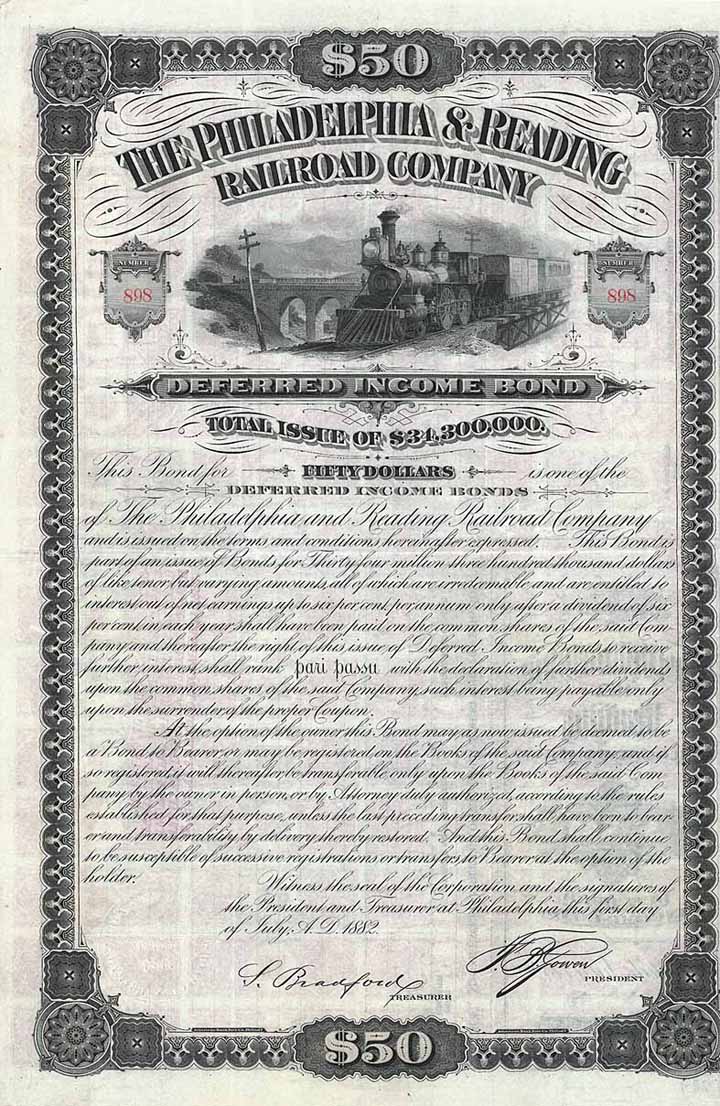 $50
THE PHILADELPHIA & READING
RAILROAD COMPANY
NUMBER
898
NUMBER
898
DEFERRED INCOME BOND
TOTAL ISSUE OF $34,300,000.
This Bond for FIFTY DOLLARS is one of the
DEFERRED INCOME BONDS
of The Philadelphia and Reading Railroad Company
and is issued on the terms and conditions hereinafter expressed. This Bond is
part of an issue of Bonds for Thirty four million three hundred thousand dollars
of like tenor but varying amounts, all of which are irredeemable and are entitled to
interest out of net earnings up to six per cent. per annum only after a dividend of six
per cent. in each year shall have been paid on the common shares of the said Com
pany and thereafter the right of this issue of Deferred Income Bonds to receive
further interest, shall rank pari passu with the declaration of further dividends
upon the common shares of the said Company, such interest being payable only
upon the surrender of the proper Coupon.
At the option of the owner this Bond may as now issued be deemed to be
a Bond to Bearer, or may be registered on the Books of the said Company: and if
so registered, it will thereafter be transferable only upon the Books of the said Com
pany by the owner in person, or by Attorney duly authorized, according to the rules
established for that purpose, unless the last preceding transfer shall have been to bear
er and transferability by delivery thereby restored. And this Bond shall continue
to be susceptible of successive registrations or transfers to Bearer at the option of the
holder.
Witness the seal of the Corporation and the signatures of
the President and Treasurer at Philadelphia this first day
of July, A.D. 1882.
S. Bradford
TREASURER
F. B. Gowen
PRESIDENT
$50